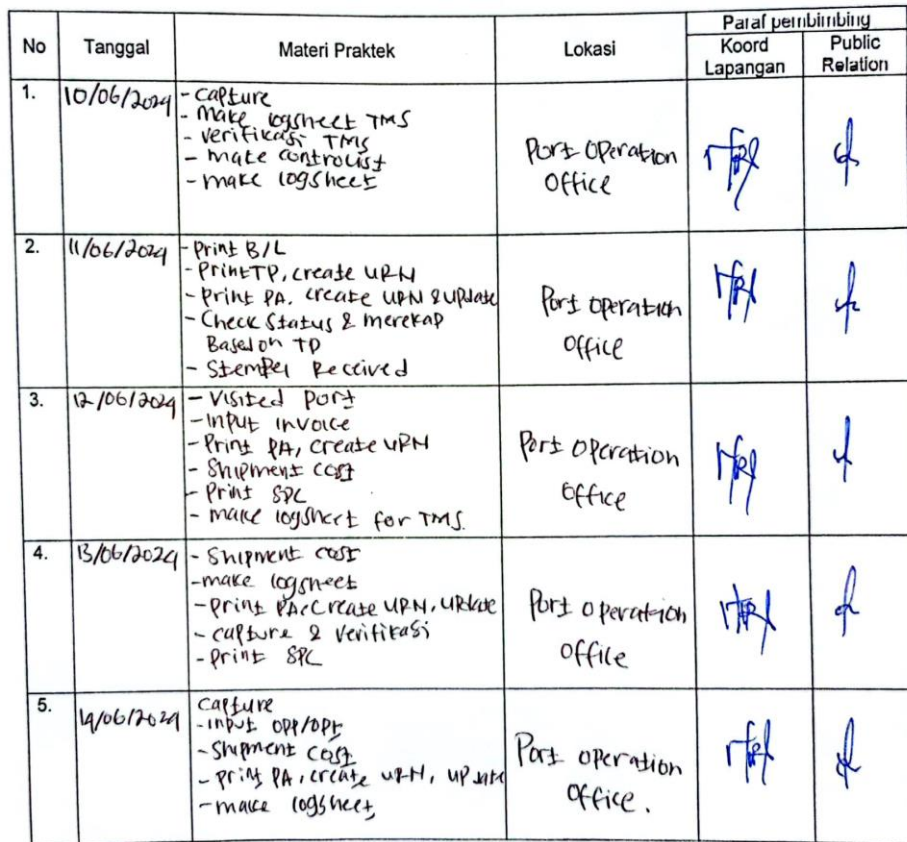 No Tanggal Materi Praktek Lokasi Paraf pembimbing
Koord Lapangan Public Relation
1. 10/06/2024 - Capture
- make logsheet TMS
- verifikasi TMS
- make controlist
- make logsheet
Port Operation
Office
2. 11/06/2024 - Print B/L
- Print TP, create URN
- Print PA, create URN & Update
- Check Status & merekap
Based on TP
- Stempel Received
Port operation
Office
3. 12/06/2024 - Visited Port
- Input invoice
- Print PA, create URN
- Shipment cost
- Print SPC
- make logsheet for TMS.
Port Operation
Office
4. 13/06/2024 - Shipment cost
- make logsheet
- print PA, Create URN, Update
- capture & verifikasi
- print SPC
Port operation
Office
5. 14/06/2024 Capture
- Input OPP/OPT
- Shipment cost
- print PA, create URN, update
- make logsheet
Port operation
Office.